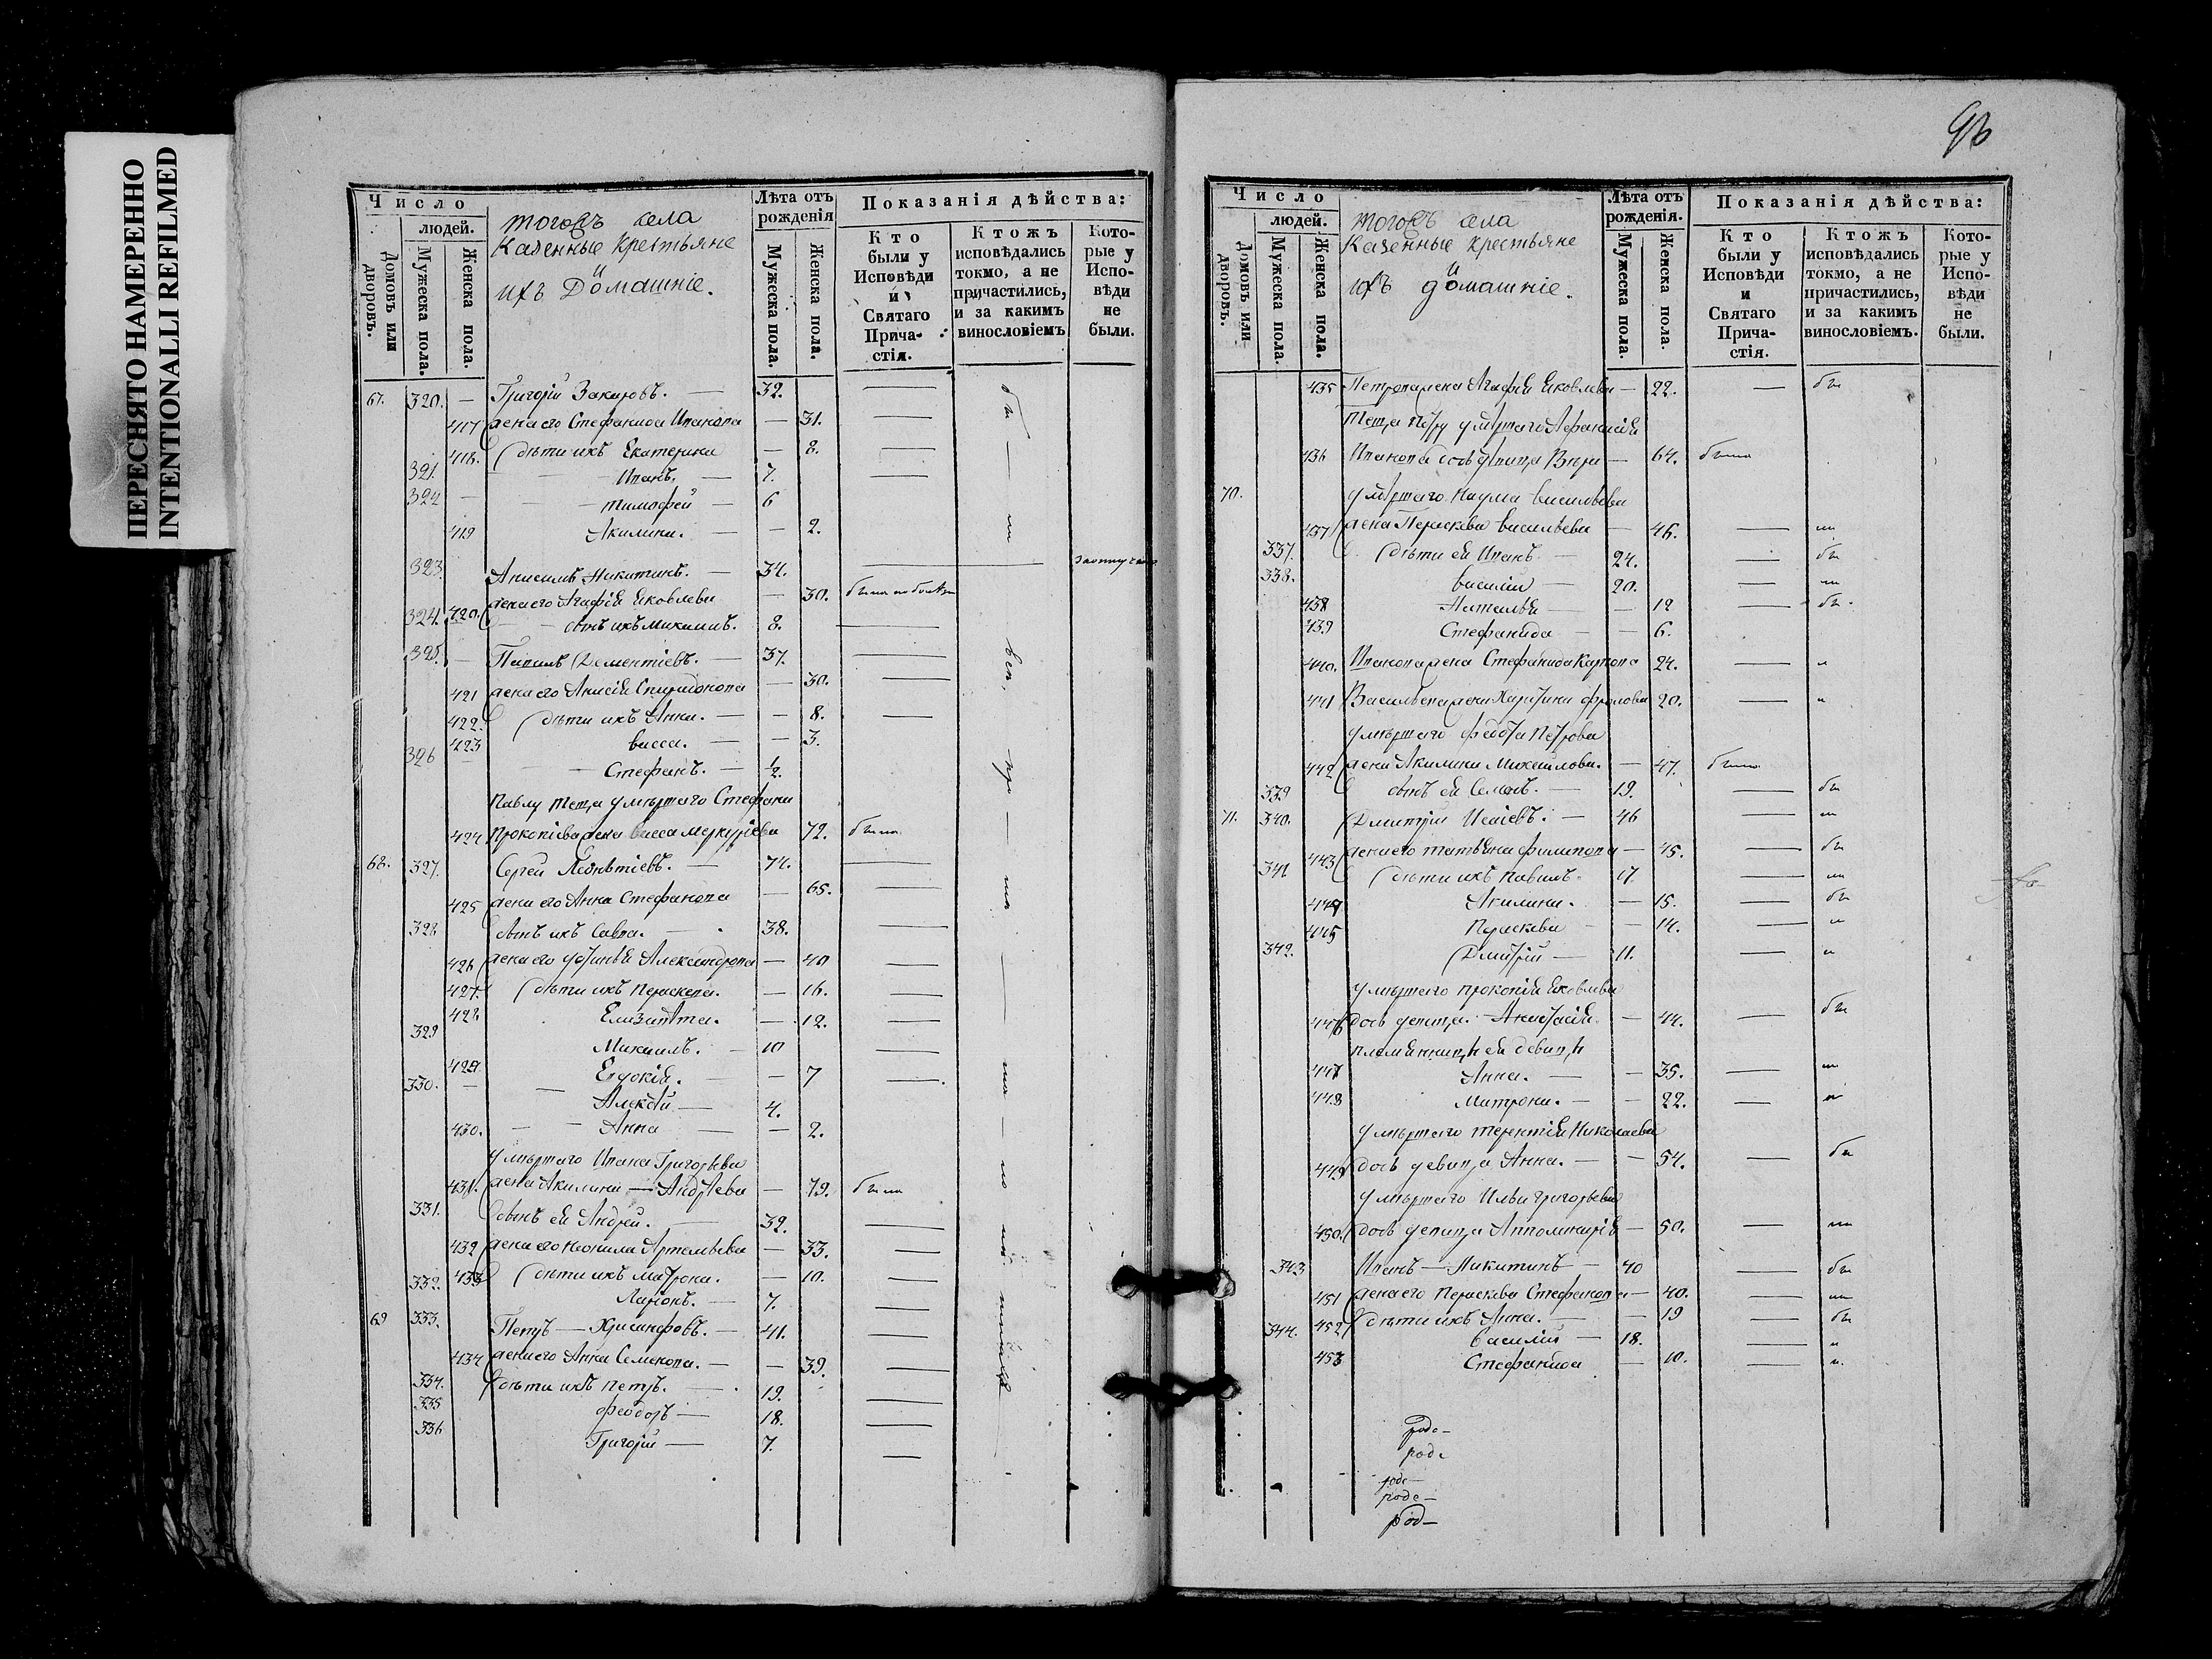 ПЕРЕСНЯТО НАМЕРЕННО
INTENTIONALLI REFILMED
Число
людей.
Домовъ или дворовъ.
Мужеска пола.
Женска пола.
тогожъ села
Казенные крестьяне
и
ихъ Домашніе.
Лѣта отъ рожденія
Мужеска пола.
Женска пола.
Показанія дѣйства:
Кто были у Исповѣди и Святаго Причастія.
Ктожъ исповѣдались токмо, а не причастились, и за какимъ винословіемъ
Которые у Исповѣди не были.
67. 320. — Григорій — 32.
417 жена его Стефанида Иванова — 31.
418. дѣти ихъ Екатерина — 8.
321. Иванъ. — 7.
322 — Тимофей — 6
419 Акилина. — 2.
323. Анисимъ Никитинъ. — 34.
420. жена его Агафія Яковлева — 30. была
324. сынъ ихъ Михаилъ. 8.
325. — Павилъ Дементіевъ. — 37.
421 жена его Анисія Спиридонова — 30.
422. дѣти ихъ Анна. — 8.
423 Васса. — 3.
326 Стефанъ. — ½.
Павлу теща умершаго Стефана
424 Прокопіева жена Васса Меркуріева 72. была
68. 327. Сергій Леонтіевъ. — 74.
425 жена его Анна Стефанова — 65.
328 сынъ ихъ Савва. — 38.
426 жена его Устинья Александрова — 40
427. дѣти ихъ Параскева. — 16.
428 Елизавета. — 12.
329 Михаилъ. — 10
429 Евдокія. — 7
330. — Алексѣй — 4.
430. — Анна — 2.
умершаго Ивана Григорьева
431. жена Акилина — Андреева — 79. была
331. сынъ ея Андрей. — 32.
432 жена его Неонила Артемьева — 33.
433 дѣти ихъ Матрона. — 10.
332. Ларіонъ. — 7.
69 333. Петръ — Хрисанфовъ. — 41.
434 жена его Анна Семенова. — 39.
334. дѣти ихъ Петръ. — 19.
335 Феодоръ — 18.
336 Григорій — 7.
96
Число
людей.
Домовъ или дворовъ.
Мужеска пола.
Женска пола.
тогожъ села
Казенные крестьяне
и
ихъ домашніе.
Лѣта отъ рожденія.
Мужеска пола.
Женска пола.
Показанія дѣйства:
Кто были у Исповѣди и Святаго Причастія.
Ктожъ исповѣдались токмо, а не причастились, и за какимъ винословіемъ.
Которые у Исповѣди не были.
435 Петрова жена Агафія Яковлева — 22. —
Теща Петру умершаго Афанасія
436 Иванова дочь дѣвица Вѣра — 64. была
70. умершаго Наума Васильева
437 жена Параскева Васильева — 46. —
337. дѣти ея Иванъ — 24. —
338. Василій — 20. —
438 Наталья — 12 —
439 Стефанида — 6.
440. Иванова жена Стефанида Карпова 24. —
441 Васильева жена Фролова 20. —
умершаго Федота Петрова
442 жена Акилина Михайлова. — 47. была
339 сынъ ея Семенъ. — 19. —
71. 340. Дмитрій — 46 —
443 жена его Татьяна Филипова — 45. —
341 дѣти ихъ Павилъ. 17. —
444 Акилина. — 15. —
445 Параскева — 14. —
342. Дмитрій — 11. —
умершаго Прокопія Яковлева
446 дочь дѣвица Анастасія — 44. —
племянницы ея девицы
447 Анна. — 35. —
448 Матрона. — 22. —
умершаго Терентія Николаева
449 дочь девица Анна. — 54. —
умершаго Ильи Григорьева
450. дочь девица Апполинарія — 50. —
343 Иванъ — Никитинъ — 40 —
451 жена его Параскева Стефанова — 40. —
452 дѣти ихъ Анна. — 19 —
344. Василій — 18. —
453 Стефанида — 10. —